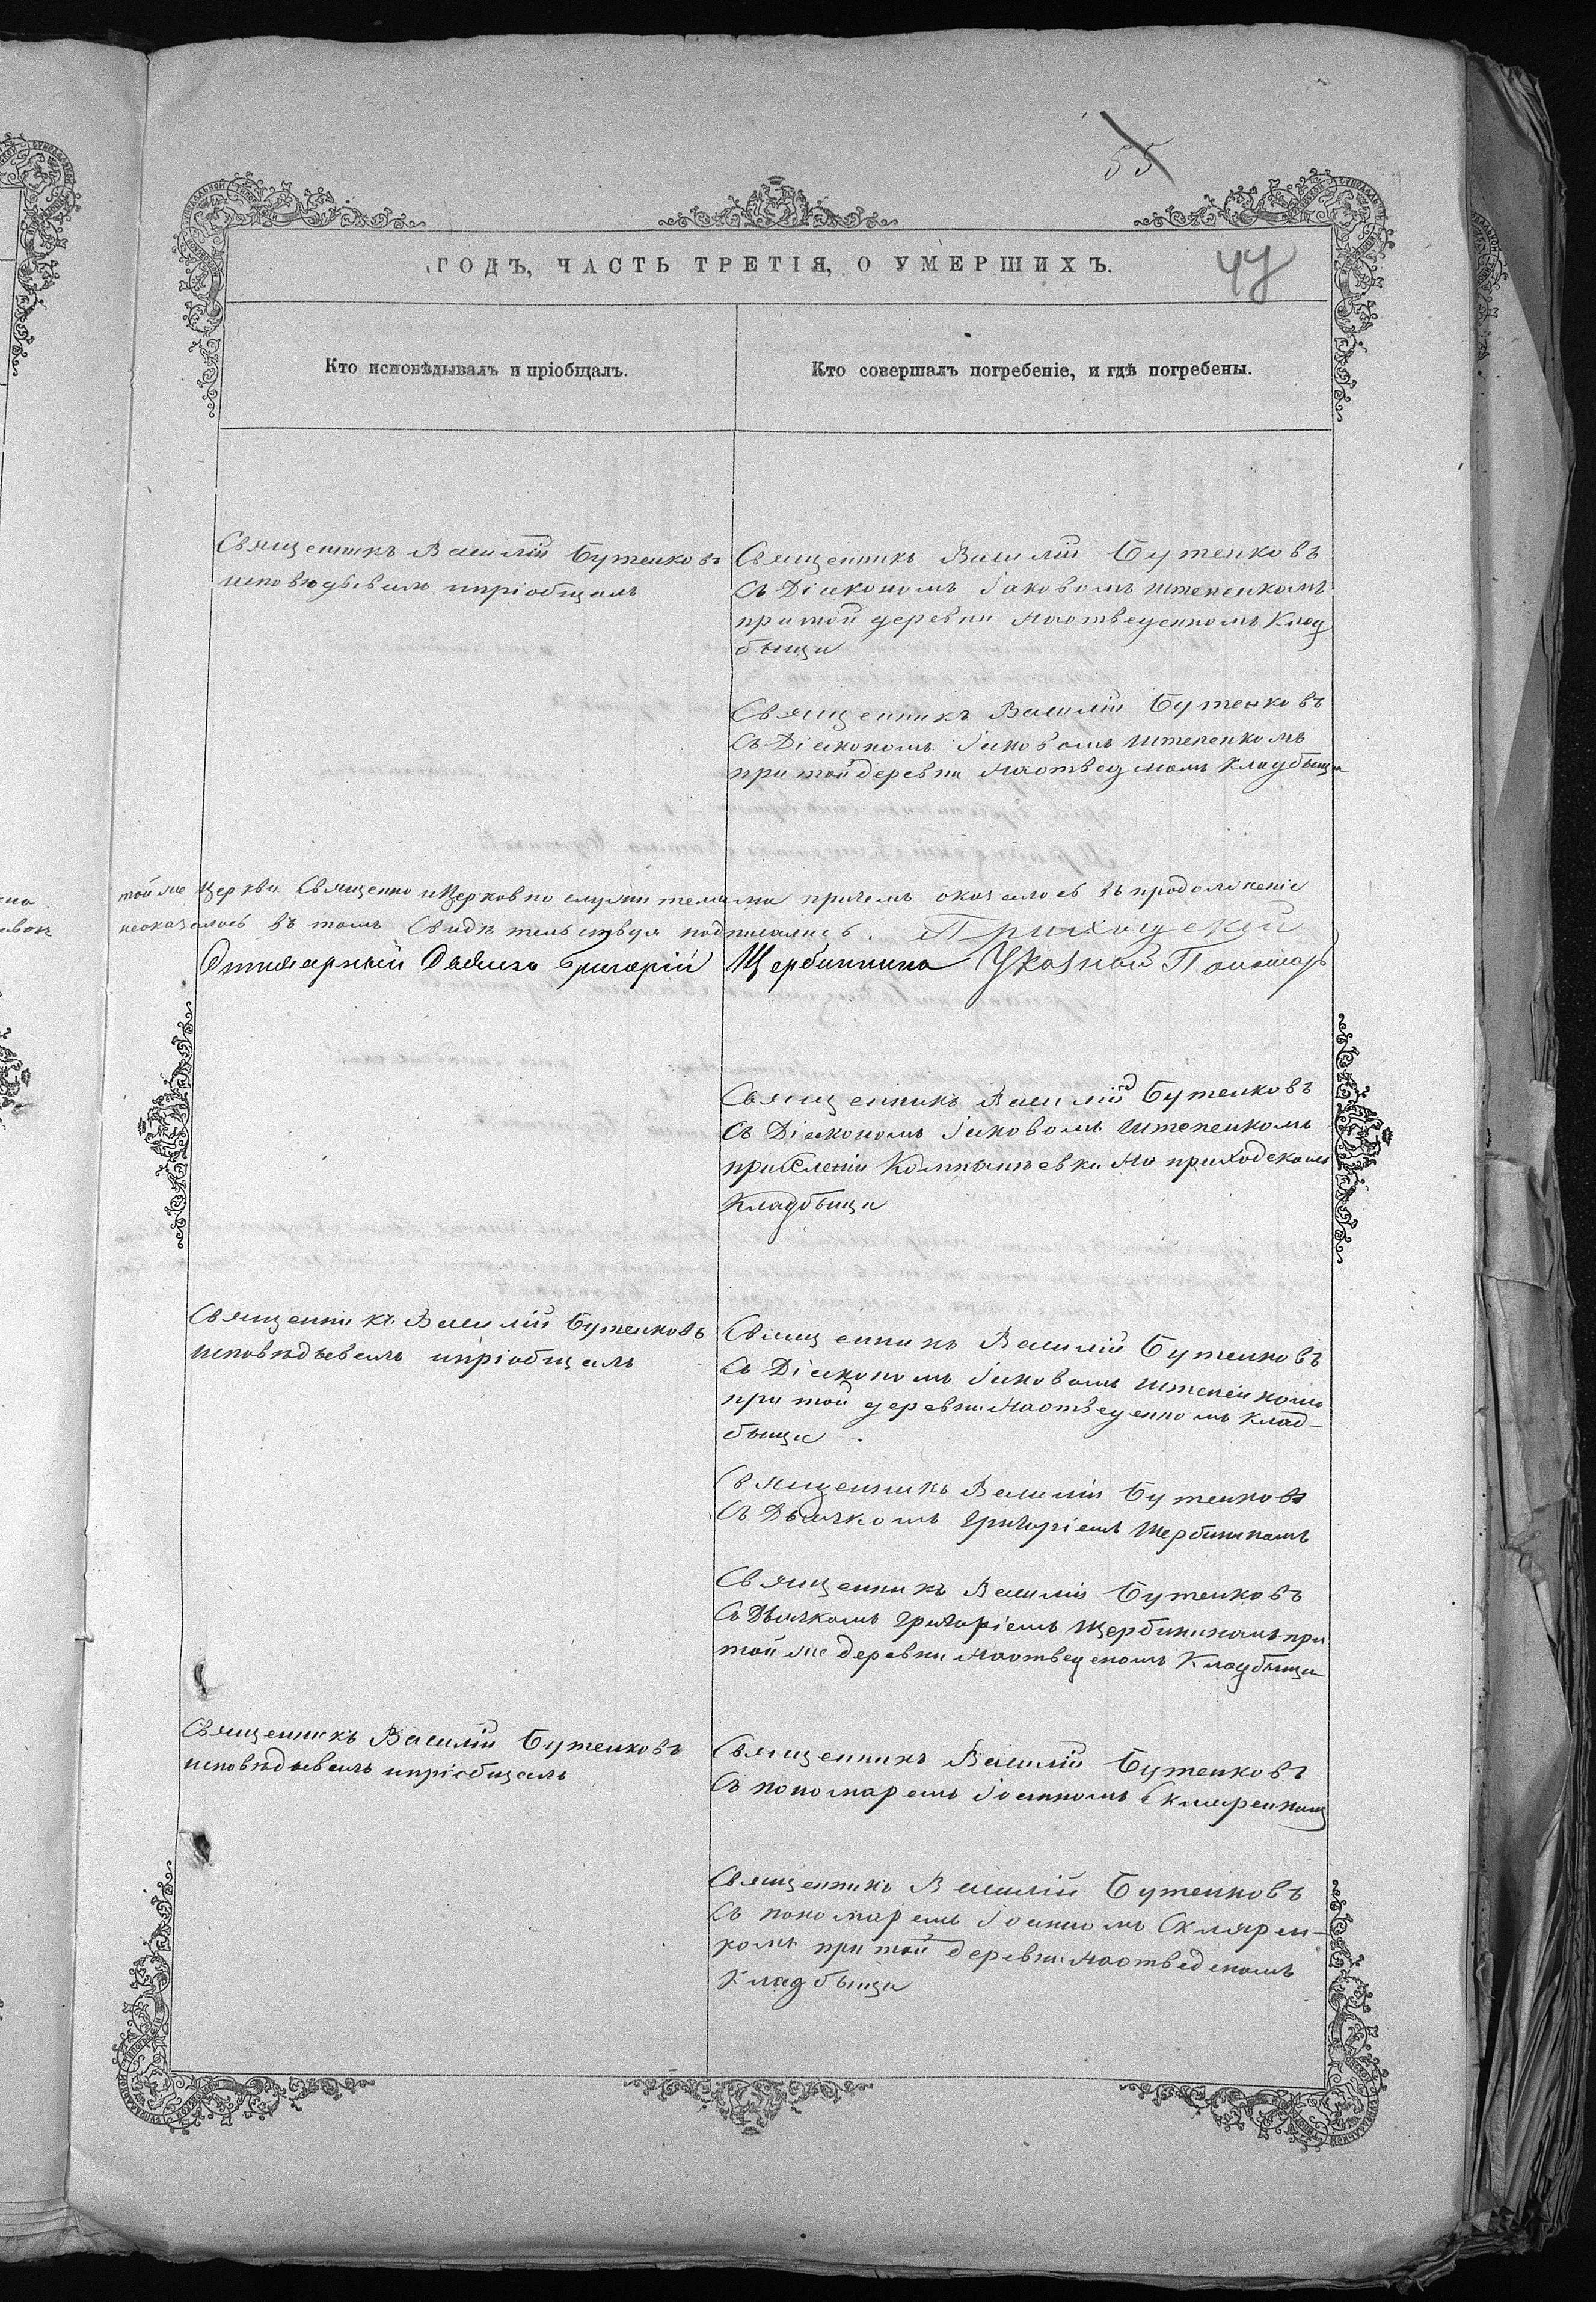 55
ГОДЪ, ЧАСТЬ ТРЕТІЯ, О УМЕРШИХЪ.
Кто исповѣдывалъ и пріобщалъ.
Кто совершалъ погребеніе, и гдѣ погребены.
Священникъ Василій Бутенковъ
исповѣдывалъ ипріобщалъ
Священникъ Василій Бутенковъ
съ Діакономъ Іаковомъ Штепенкомъ
при той деревни наотведенномъ Клад
быщи
Священникъ Василій Бутенковъ
съ Діакономъ Іаковомъ Штепенкомъ
при той деревни наотведномъ Кладбыщи
той же Церкви Священно иЦерковно служителями причемъ оказалось въ продолженіе
неоказалось въ томъ Свидѣтельствуя подписались. Приходскій
Григорій Щербинина Указной Пономарь
Священникъ Василій Бутенковъ
съ Діакономъ Іаковомъ Штепенкомъ
при на приходскомъ
Кладбыщи
Священникъ Василій Бутенковъ
исповѣдывалъ ипріобщалъ
Священникъ Василій Бутенковъ
съ Діакономъ Іаковомъ Штепенкомъ
при той деревни наотведенномъ клад-
быщи.
Священникъ Василій Бутенковъ
съ Дьячкомъ Григоріемъ Щербининамъ
Священникъ Василій Бутенковъ
съ Дьячкомъ Григоріемъ Щербининамъ при
той же деревни наотведеномъ Кладбыщи
Священникъ Василій Бутенковъ
исповѣдывалъ ипріобщалъ
Священникъ Василій Бутенковъ
съ пономаремъ Іоанномъ Скляренкомъ
Священникъ Василій Бутенковъ
съ пономаремъ Іоанномъ Скларен-
комъ при той деревни наотведеномъ
Кладбыщи